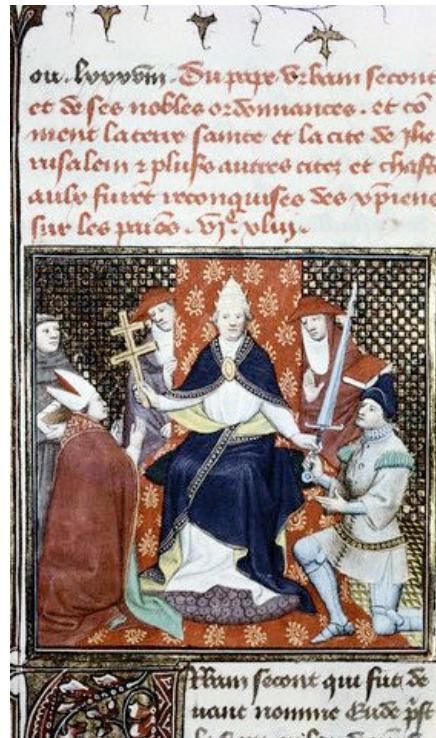 ou. lxxxviii. Du pape Urbain second
et de ses nobles ordonnances. et co
ment la terre sainte et la cite de Jhe
rusalem & plusrs autres citez et chaste
aulx furent reconquises des xpiens
sur les
Urbain second qui fut de
uant nomme Eude